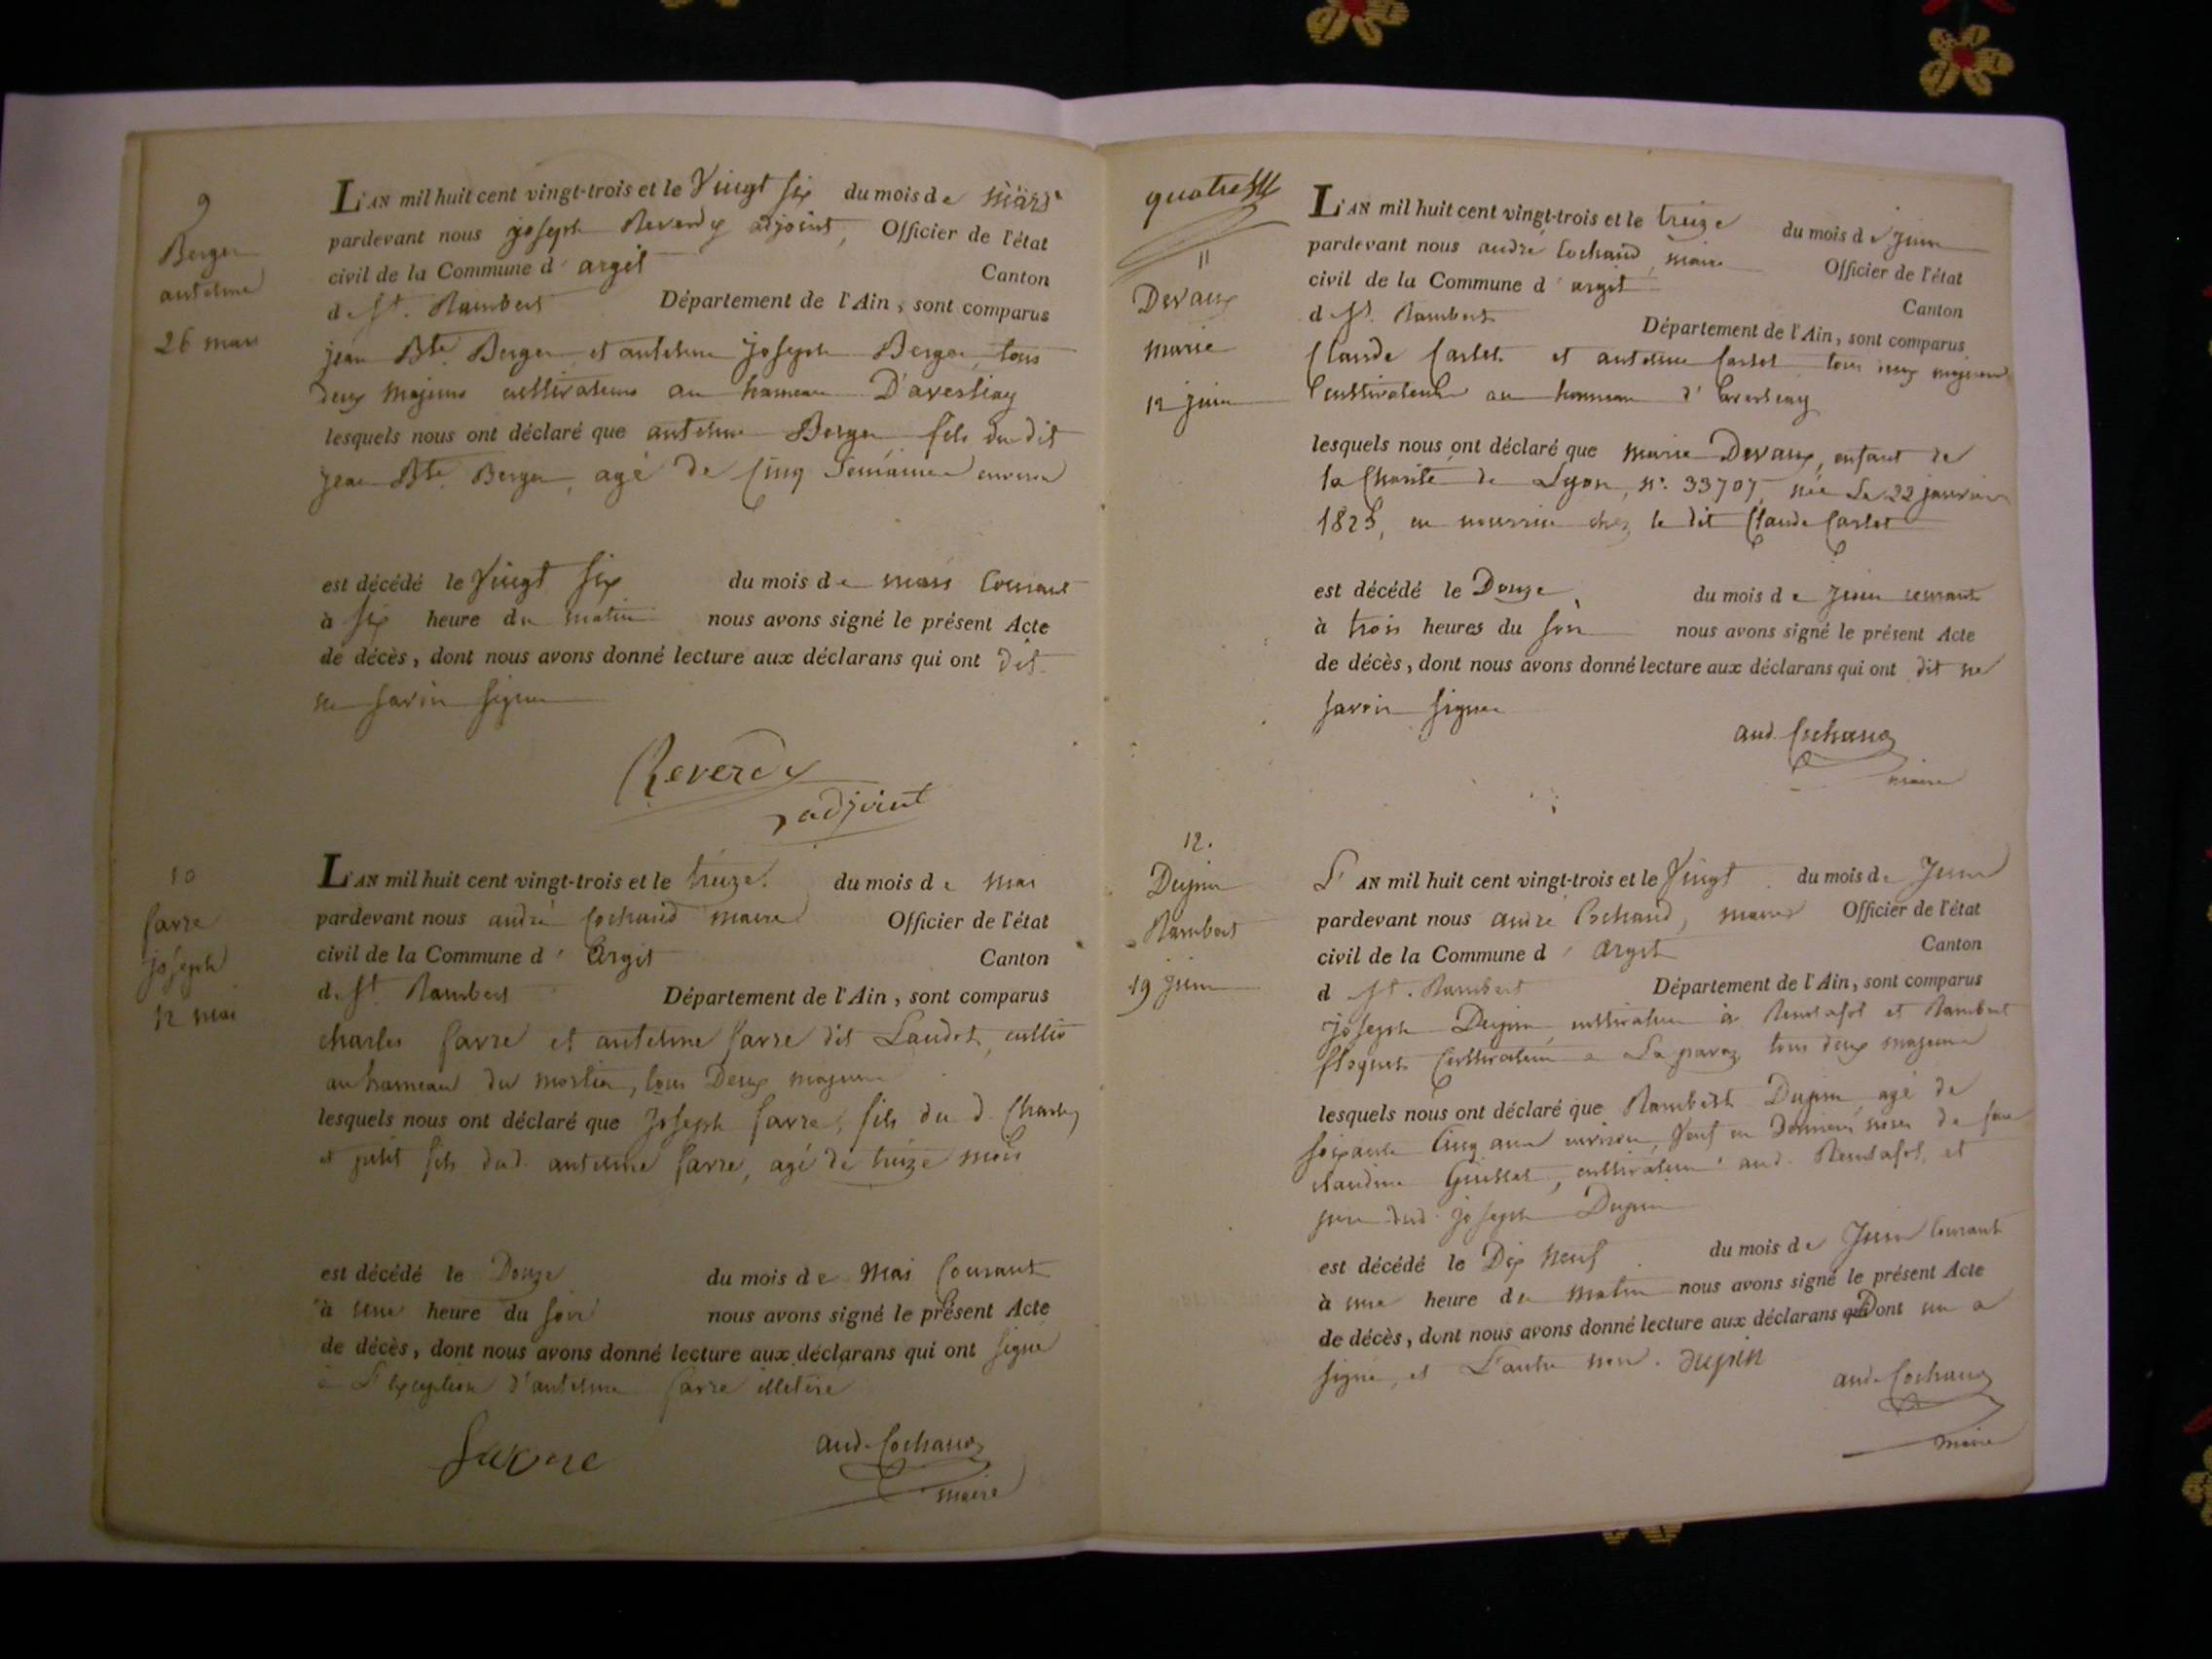 9
Berger
antelme
26 mars
L'AN mil huit cent vingt-trois et le Vingt six du mois de mars
pardevant nous joseph Reverdy adjoint, Officier de l'état
civil de la Commune d'argit Canton
d St. Rambert Département de l'Ain, sont comparus
jean Bte Berger et antelme joseph Berger tous
deux majeurs cultivateurs au hameau D'averliay
lesquels nous ont déclaré que antelme Berger fils du dit
jean Bte Berger, agé de Cinq Semaines environ
est décédé le Vingt six du mois de mars Courant
à six heure du matin nous avons signé le présent Acte
de décès, dont nous avons donné lecture aux déclarans qui ont dit
ne savoir signer
Reverdy
adjoint
10
favre
joseph
12 mai
L'AN mil huit cent vingt-trois et le treize du mois de mai
pardevant nous andré Cochand maire Officier de l'état
civil de la Commune d'Argit Canton
d St Rambert Département de l'Ain, sont comparus
charles favre et antelme favre dit Landot, cultiv
au hameau du mortier, tous Deux majeurs
lesquels nous ont déclaré que Joseph favre, fils du d. Charles
et petit fils dud. antelme favre, agé de treize mois
est décédé le Douze du mois de Mai Courant
à une heure du soir nous avons signé le présent Acte
de décès, dont nous avons donné lecture aux déclarans qui ont signé
à L'exception d'antelme favre illetéré
favre
and. Cochand
maire
quatre
11
Devaux
marie
12 juin
L'AN mil huit cent vingt-trois et le treize du mois de juin
pardevant nous andré Cochand, maire Officier de l'état
civil de la Commune d'argit Canton
d St. Rambert Département de l'Ain, sont comparus
Claude Carlet et antelme Carlet tous deux majeurs
Cultivateurs au hameau d'Averliay
lesquels nous ont déclaré que marie Devaux, enfant de
la Charité de Lyon, n°. 33707, née Le 22 janvier
1823, en nourrice chez le dit Claude Carlet
est décédé le Douze du mois de juin courant
à trois heures du soir nous avons signé le présent Acte
de décès, dont nous avons donné lecture aux déclarans qui ont dit ne
savoir signer
and. Cochand
maire
12.
Dupin
Rambert
19 juin
L'AN mil huit cent vingt-trois et le Vingt du mois de Juin
pardevant nous andré Cochand, maire Officier de l'état
civil de la Commune d'Argit Canton
d St. Rambert Département de l'Ain, sont comparus
joseph Dupin, cultivateur à Reculafol et Rambert
Cultivateur à tous deux majeurs
lesquels nous ont déclaré que Rambert Dupin, agé de
soixante Cinq ans environ, Veuf en Dernières noces de feue
claudine cultivateur aud. Reculafol, et
père dud. joseph Dupin
est décédé le Dix neuf du mois de Juin Courant
à une heure du matin nous avons signé le présent Acte
de décès, dont nous avons donné lecture aux déclarans Dont un a
signé, et L'autre non. dupin
and. Cochand
maire